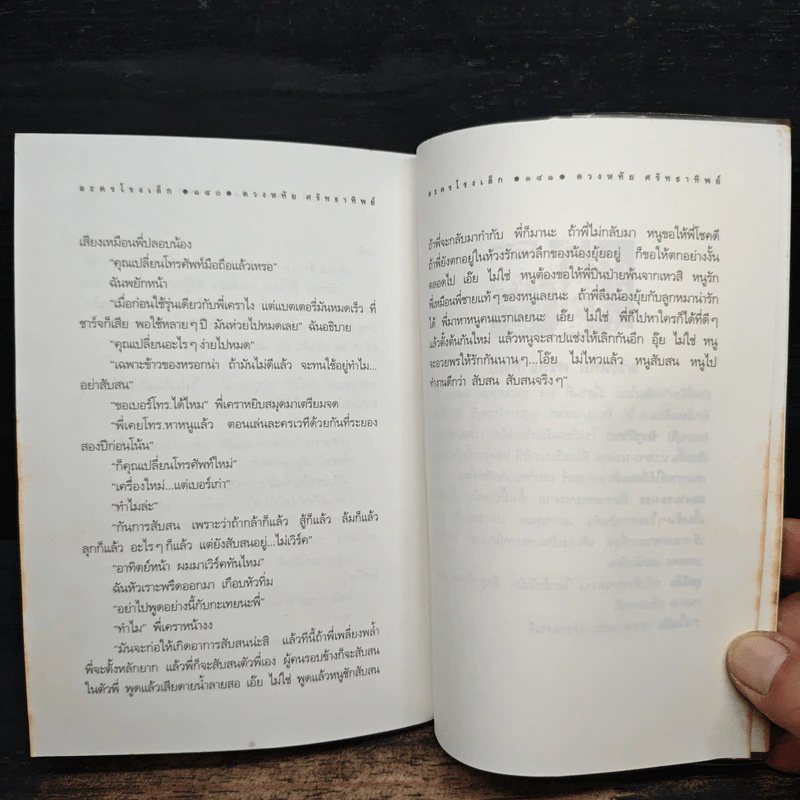 ละครโรงเล็ก ๑๔๐ ดวงหทัย ศรัทธาทิพย์
เสียงเหมือนพี่ปลอบน้อง
“คุณเปลี่ยนโทรศัพท์มือถือแล้วเหรอ”
ฉันพยักหน้า
“เมื่อก่อนใช้รุ่นเดียวกับพี่เคราไง แต่แบตเตอรี่มันหมดเร็ว ที่
ชาร์จก็เสีย พอใช้หลายๆ ปี มันห่วยไปหมดเลย” ฉันอธิบาย
“คุณเปลี่ยนอะไรๆ ง่ายไปหมด”
“เฉพาะข้าวของหรอกน่า ถ้ามันไม่ดีแล้ว จะทนใช้อยู่ทำไม...
อย่าสับสน”
“ขอเบอร์โทร.ได้ไหม” พี่เคราหยิบสมุดมาเตรียมจด
“พี่เคยโทร.หาหนูแล้ว ตอนเล่นละครเวทีด้วยกันที่ระยอง
สองปีก่อนโน้น”
“ก็คุณเปลี่ยนโทรศัพท์ใหม่”
“เครื่องใหม่...แต่เบอร์เก่า”
“ทำไมล่ะ”
“กันการสับสน เพราะว่าถ้ากล้าก็แล้ว สู้ก็แล้ว ล้มก็แล้ว
ลุกก็แล้ว อะไรๆ ก็แล้ว แต่ยังสับสนอยู่...ไม่เวิร์ค”
“อาทิตย์หน้า ผมมาเวิร์คทันไหม”
ฉันหัวเราะพรืดออกมา เกือบหัวทิ่ม
“อย่าไปพูดอย่างนี้กับกะเทยนะพี่”
“ทำไม” พี่เคราหน้างง
“มันจะก่อให้เกิดอาการสับสนน่ะสิ แล้วทีนี้ถ้าพี่เพลี่ยงพล้ำ
พี่จะตั้งหลักยาก แล้วพี่ก็จะสับสนตัวพี่เอง ผู้คนรอบข้างก็จะสับสน
ในตัวพี่ พูดแล้วเสียดายน้ำลายสอ เอ๊ย ไม่ใช่ พูดแล้วหนูชักสับสน
ละครโรงเล็ก ๑๔๑ ดวงหทัย ศรัทธาทิพย์
ถ้าพี่จะกลับมากำกับ พี่ก็มานะ ถ้าพี่ไม่กลับมา หนูขอให้พี่โชคดี
ถ้าพี่ยังตกอยู่ในห้วงรักเหวลึกของน้องยุ้ยอยู่ ก็ขอให้ตกอย่างงั้น
ตลอดไป เอ๊ย ไม่ใช่ หนูต้องขอให้พี่ปีนป่ายพ้นจากเหวสิ หนูรัก
พี่เหมือนพี่ชายแท้ๆ ของหนูเลยนะ ถ้าพี่ลืมน้องยุ้ยกับลูกหมาน่ารัก
ได้ พี่มาหาหนูคนแรกเลยนะ เอ๊ย ไม่ใช่ พี่ก็ไปหาใครก็ได้ที่ดีๆ
แล้วตั้งต้นกันใหม่ แล้วหนูจะสาปแช่งให้เลิกกันอีก อุ๊ย ไม่ใช่ หนู
จะอวยพรให้รักกันนานๆ...โอ๊ย ไม่ไหวแล้ว หนูสับสน หนูไป
ทำงานดีกว่า สับสน สับสนจริงๆ”